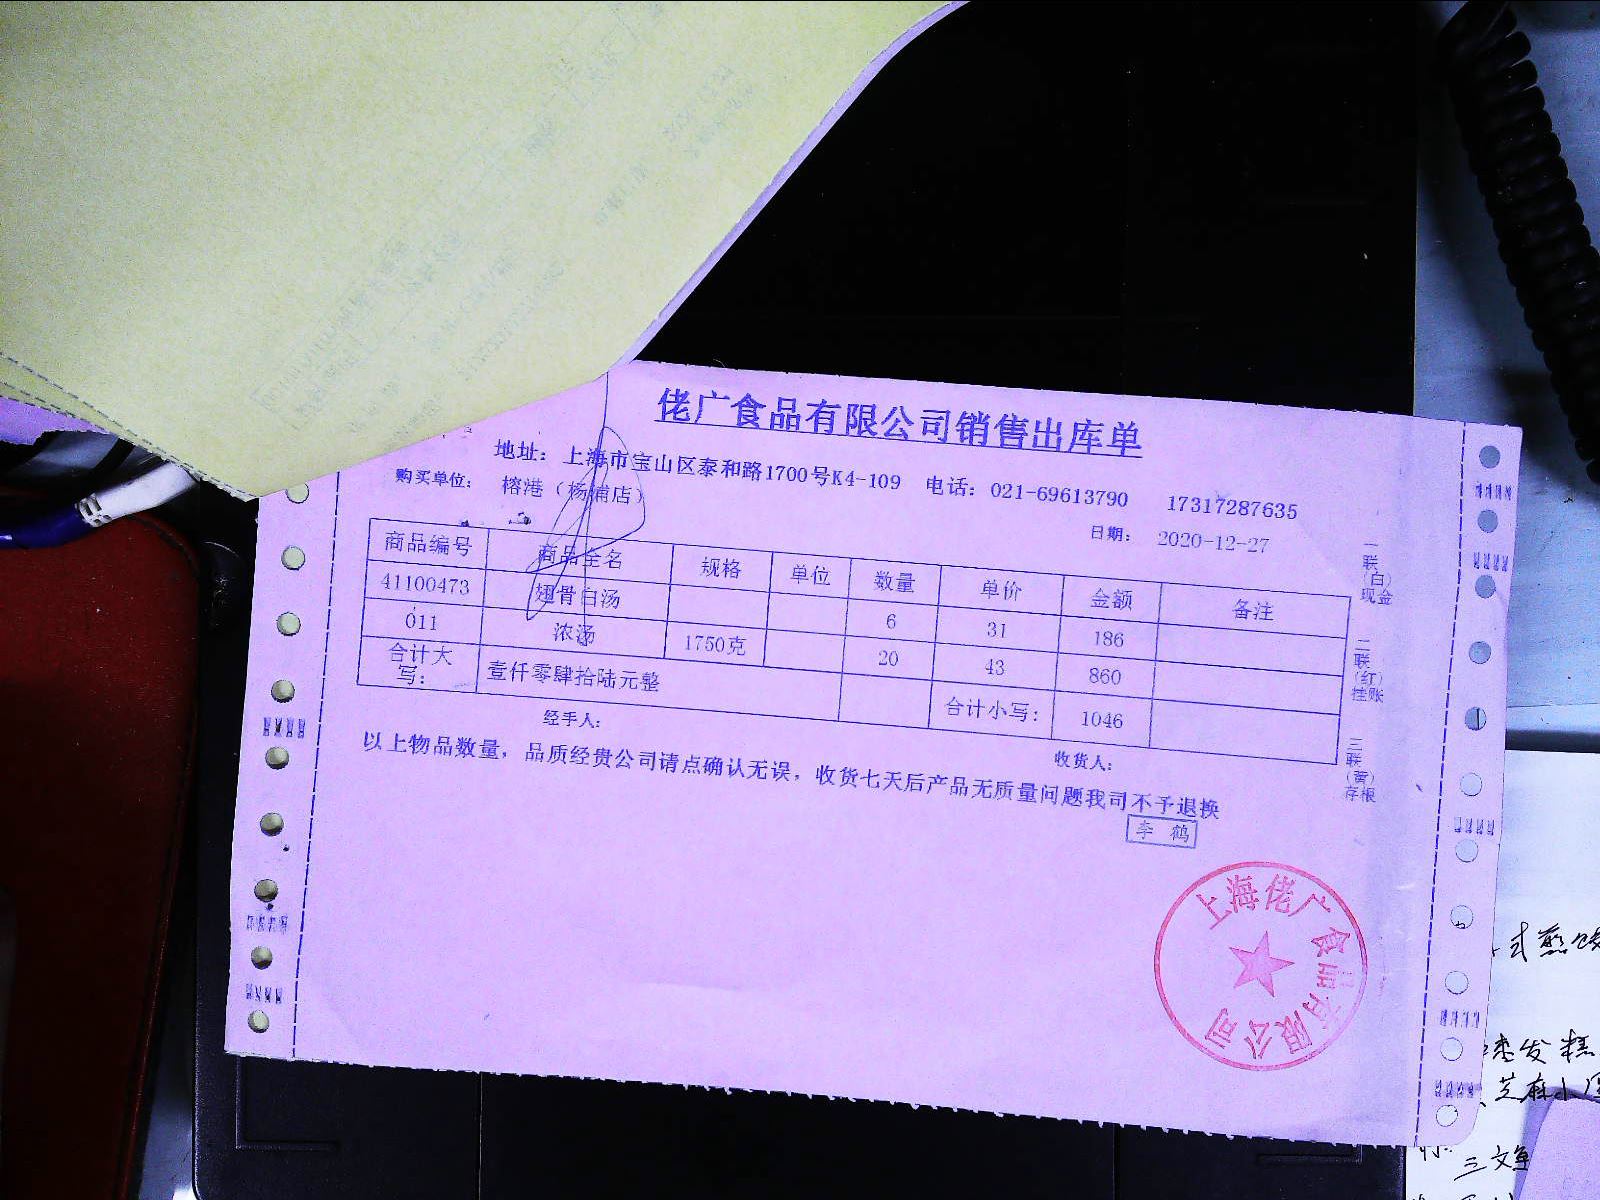 佬广食品有限公司销售出库单
地址：上海市宝山区泰和路1700号K4-109 电话：021-69613790 17317287635
购买单位： 榕港（杨浦店）
日期： 2020-12-27
商品编号 商品全名 规格 单位 数量 单价 金额 备注
41100473 翅骨白汤 6 31 186
011 浓汤 1750克 20 43 860
合计大写： 壹仟零肆拾陆元整 合计小写： 1046
经手人： 收货人：
以上物品数量，品质经贵公司请点确认无误，收货七天后产品无质量问题我司不予退换
李鹤
一联（白）现金
二联（红）挂账
三联（黄）存根
上海佬广食品有限公司
式煎饺
枣发糕
芝麻小
三文鱼